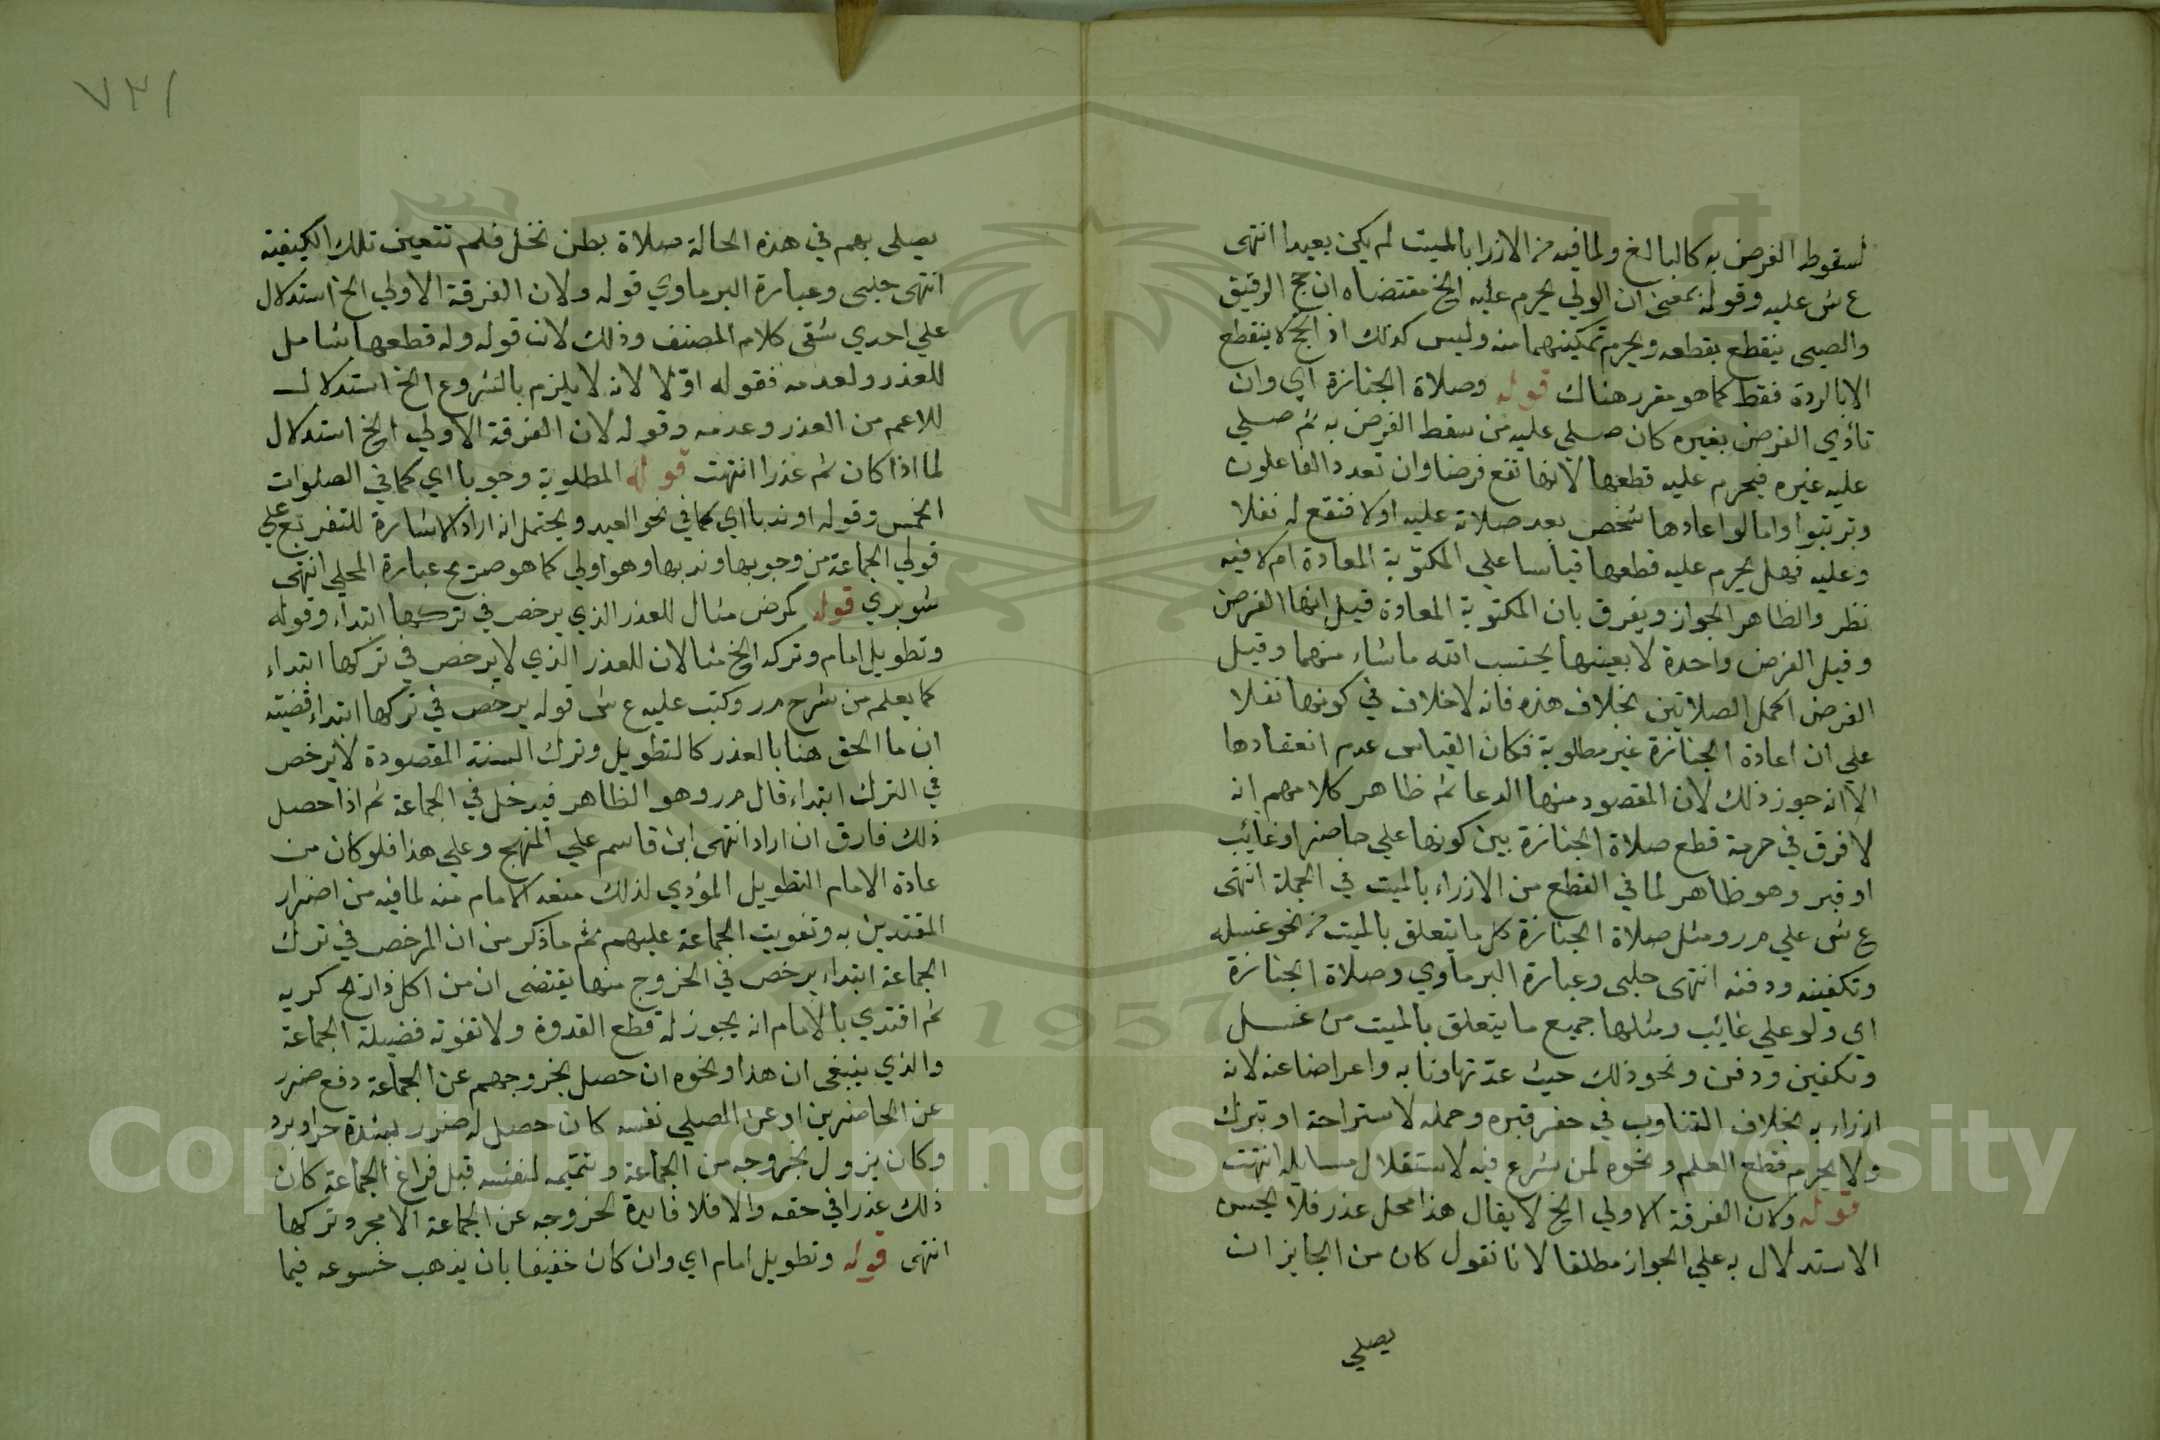 لسقوط الفرض به كالبالغ ولما فيه من الازرا بالميت لم يكن بعيدا انتهى
ع ش عليه وقوله بمعنى ان الولي يحرم عليه الخ مقتضاه ان حج الرقيق
والصبي ينقطع بقطعه ويحرم تمكينهما منه وليس كذلك اذ الحج لا ينقطع
الا بالردة فقط كما هو مقرر هناك قوله وصلاة الجنازة اي وان
تأدي الفرض بغيره كان صلي عليه من سقط الفرض به ثم صلي
عليه غيره فيحرم عليه قطعها لانها تقع فرضا وان تعدد الفاعلون
وترتبوا واما لو اعادها شخص بعد صلاته عليه اولا فتقع له نفلا
وعليه فهل يحرم عليه قطعها قياسا علي المكتوبة المعادة ام لا فيه
نظر والظاهر الجواز ويفرق بان المكتوبة المعادة قيل انها الفرض
وقيل الفرض واحدة لا بعينها يحتسب الله ما شاء منهما وقيل
الفرض اكمل الصلاتين بخلاف هذه فانه لا خلاف في كونها نفلا
علي ان اعادة الجنازة غير مطلوبة فكان القياس عدم انعقادها
الا انه جوز ذلك لان المقصود منها الدعا ثم ظاهر كلامهم انه
لا فرق في حرمة قطع صلاة الجنازة بين كونها علي حاضر او غائب
او قبر وهو ظاهر لما في القطع من الازراء بالميت في الجملة انتهى
ع ش علي م ر ومثل صلاة الجنازة كل ما يتعلق بالميت من نحو غسله
وتكفينه ودفنه انتهى حلبى وعبارة البرماوي وصلاة الجنازة
اى ولو علي غائب ومثلها جميع ما يتعلق بالميت من غسل
وتكفين ودفن ونحو ذلك حيث عد تهاونا به واعراضا عنه لانه
ازراء به بخلاف التناوب في حفر قبره وحمله لاستراحة او تبرك
ولا يحرم قطع العلم ونحوه لمن شرع فيه لاستقلال مسايله انتهت
قوله ولان الفرقة الاولي الخ لا يقال هذا محل عذر فلا يحسن
الاستدلال به علي الجواز مطلقا لانا نقول كان من الجايز ان
يصلي
٧٣١
يصلي بهم في هذه الحالة صلاة بطن نخل فلم تتعين تلك الكيفية
انتهى حلبى وعبارة البرماوي قوله ولان الفرقة الاولي الخ استدلال
علي احدي شقى كلام المصنف وذلك لان قوله وله قطعها شامل
للعذر ولعدمه فقوله اوّلا لانه لا يلزم بالشروع الخ استدلال
للاعم من العذر وعدمه وقوله لان الفرقة الاولي الخ استدلال
لما اذا كان ثم عذرا انتهت قوله المطلوبة وجوبا اي كما في الصلوات
الخمس وقوله او ندبا اي كما في نحو العيد ويحتمل انه اراد الاشارة للتفريع علي
قولي الجماعة من وجوبها وندبها وهو اولي كما هو صريح عبارة المحلي انتهى
شوبري قوله كمرض مثال للعذر الذي يرخص في تركها ابتداء وقوله
وتطويل امام وتركه الخ مثالان للعذر الذي لا يرخص في تركها ابتداء
كما يعلم من شرح م ر وكتب عليه ع ش قوله يرخص في تركها ابتداء قضيته
ان ما الحق هنا بالعذر كالتطويل وترك السنة المقصودة لا يرخص
في الترك ابتداء قال م ر وهو الظاهر فيدخل في الجماعة ثم اذا حصل
ذلك فارق ان اراد انتهى ابن قاسم علي المنهج وعلي هذا فلو كان من
عادة الامام التطويل المؤدي لذلك منعه الامام منه لما فيه من اضرار
المقتدين به وتفويت الجماعة عليهم ثم ما ذكر من ان المرخص في ترك
الجماعة ابتداء يرخص في الخروج منها يقتضى ان من اكل ذا ريح كريه
ثم اقتدي بالامام انه يجوز له قطع القدوة ولا تفوته فضيلة الجماعة
والذي ينبغى ان هذا ونحوه ان حصل بخروجهم عن الجماعة دفع ضرر
عن الحاضرين او عن المصلي نفسه كان حصل له ضرر بشدة حر او برد
وكان يزول بخروجه من الجماعة وتتميمه لنفسه قبل فراغ الجماعة كان
ذلك عذرا في حقه والا فلا فايدة لخروجه عن الجماعة الا مجرد تركها
انتهى قوله وتطويل امام اي وان كان خفيفا بان يذهب خشوعه فيما
Copyright © King Saud University
1957